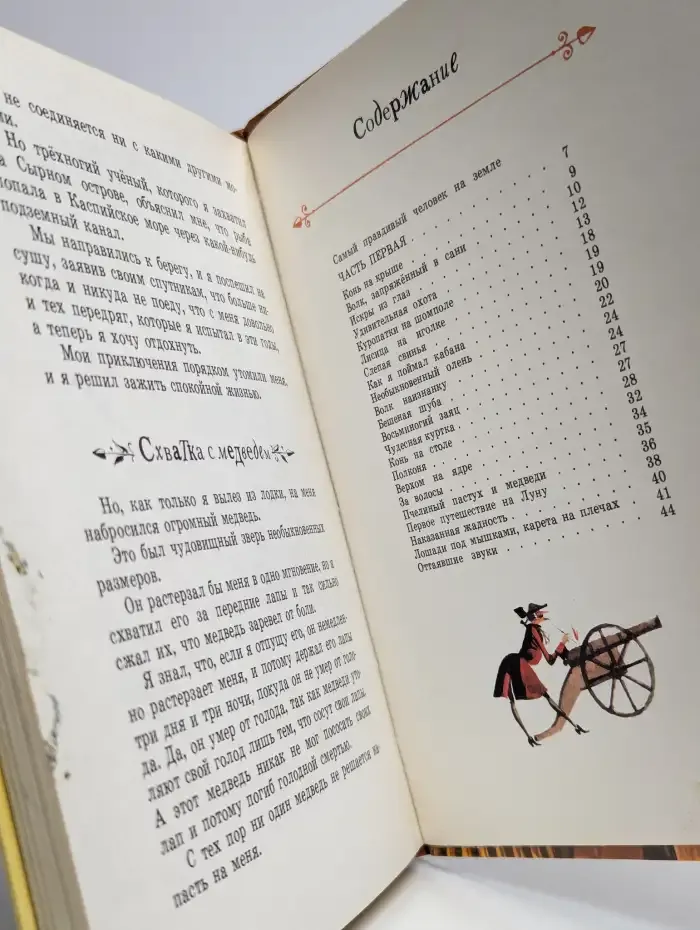 не соединяется ни с какими другими мо-
ми.
Но трёхногий учёный, которого я захватил
а Сырном острове, объяснил мне, что рыба
попала в Каспийское море через какой-нибудь
подземный канал.
Мы направились к берегу, и я поспешил на
сушу, заявив своим спутникам, что больше ни-
когда и никуда не поеду, что с меня довольно
и тех передряг, которые я испытал в эти годы,
а теперь я хочу отдохнуть.
Мои приключения порядком утомили меня,
и я решил зажить спокойной жизнью.
Схватка с медведем
Но, как только я вылез из лодки, на меня
набросился огромный медведь.
Это был чудовищный зверь необыкновенных
размеров.
Он растерзал бы меня в одно мгновение, но я
схватил его за передние лапы и так сильно
сжал их, что медведь заревел от боли.
Я знал, что, если я отпущу его, он немедлен-
но растерзает меня, и потому держал его лапы
три дня и три ночи, покуда он не умер от голо-
да. Да, он умер от голода, так как медведи уто-
ляют свой голод лишь тем, что сосут свои лапы.
А этот медведь никак не мог пососать своих
лап и потому погиб голодной смертью.
С тех пор ни один медведь не решается на-
пасть на меня.
Содержание
Самый правдивый человек на земле 7
ЧАСТЬ ПЕРВАЯ
Конь на крыше 9
Волк, запряжённый в сани 10
Искры из глаз 12
Удивительная охота 13
Куропатки на шомполе 18
Лисица на иголке 19
Слепая свинья 19
Как я поймал кабана 20
Необыкновенный олень 22
Волк наизнанку 24
Бешеная шуба 24
Восьминогий заяц 27
Чудесная куртка 27
Конь на столе 28
Полконя 32
Верхом на ядре 34
За волосы 35
Пчелиный пастух и медведи 36
Первое путешествие на Луну 38
Наказанная жадность 40
Лошади под мышками, карета на плечах 41
Оттаявшие звуки 44